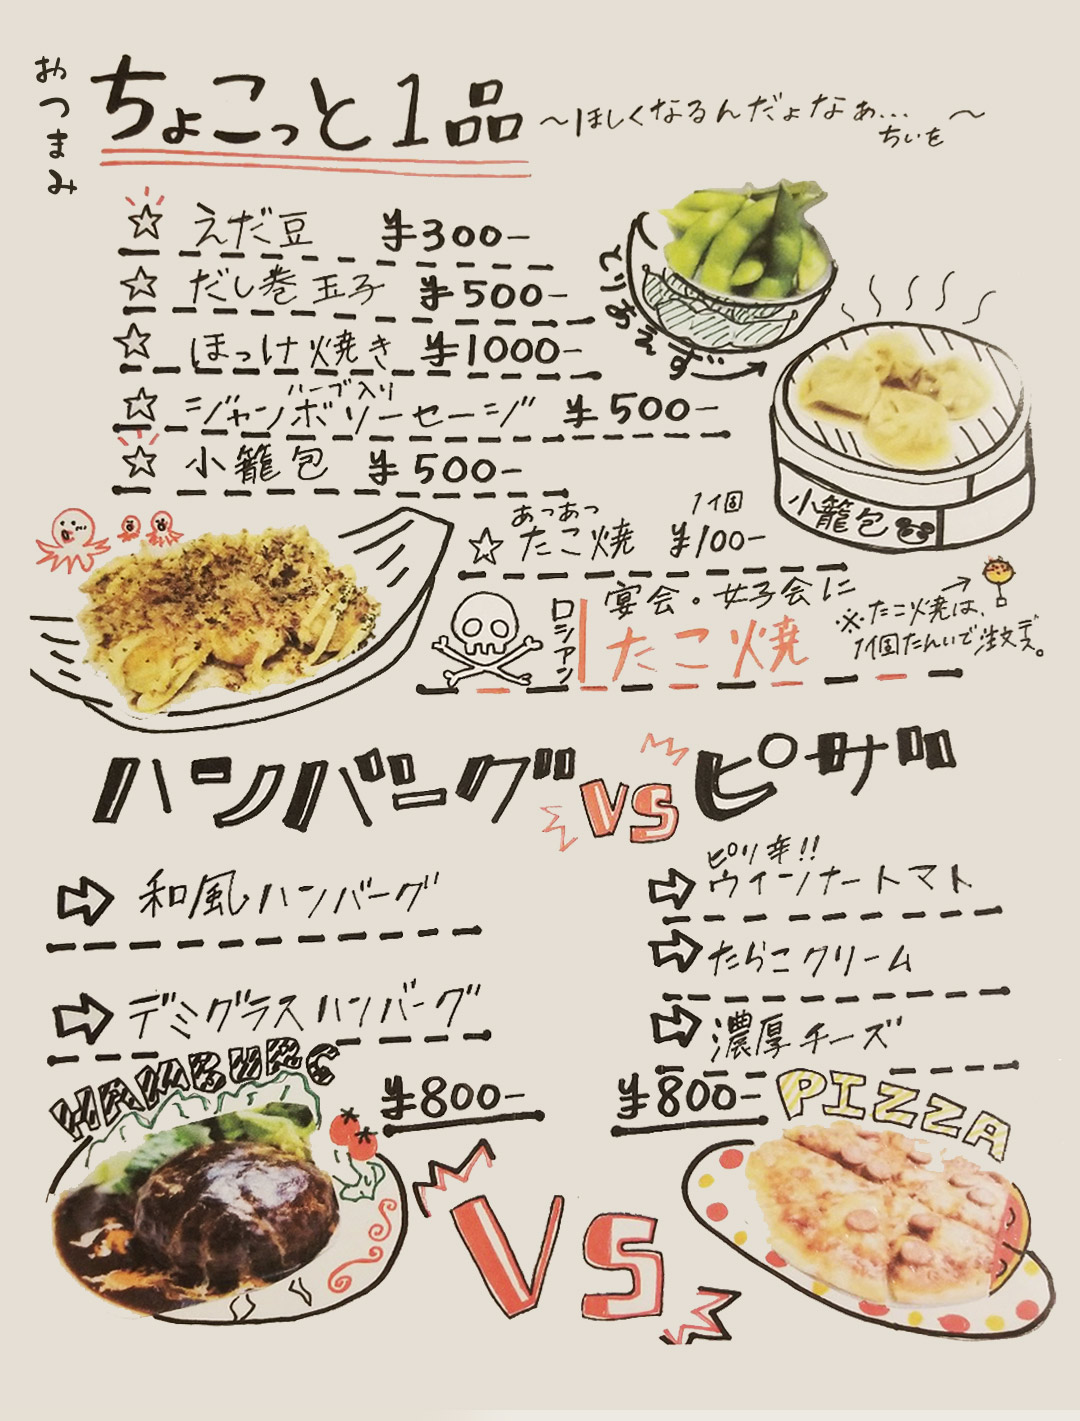 おつまみ
ちょこっと1品
～ほしくなるんだよなぁ… ～
ちいを
☆ えだ豆 ¥300-
☆ だし巻玉子 ¥500-
☆ ほっけ焼き ¥1000-
ハーブ入り
☆ ジャンボソーセージ ¥500-
☆ 小籠包 ¥500-
とりあえず…
小籠包
あつあつ 1個
☆ たこ焼 ¥100-
宴会・女子会に
ロシアン たこ焼
※たこ焼は、
1個たんいで注文デス。
ハンバーグ VS ピザ
和風ハンバーグ
デミグラスハンバーグ
ピリ辛!!
ウインナートマト
たらこクリーム
濃厚チーズ
HAMBURG
¥800-
¥800-
PIZZA
VS